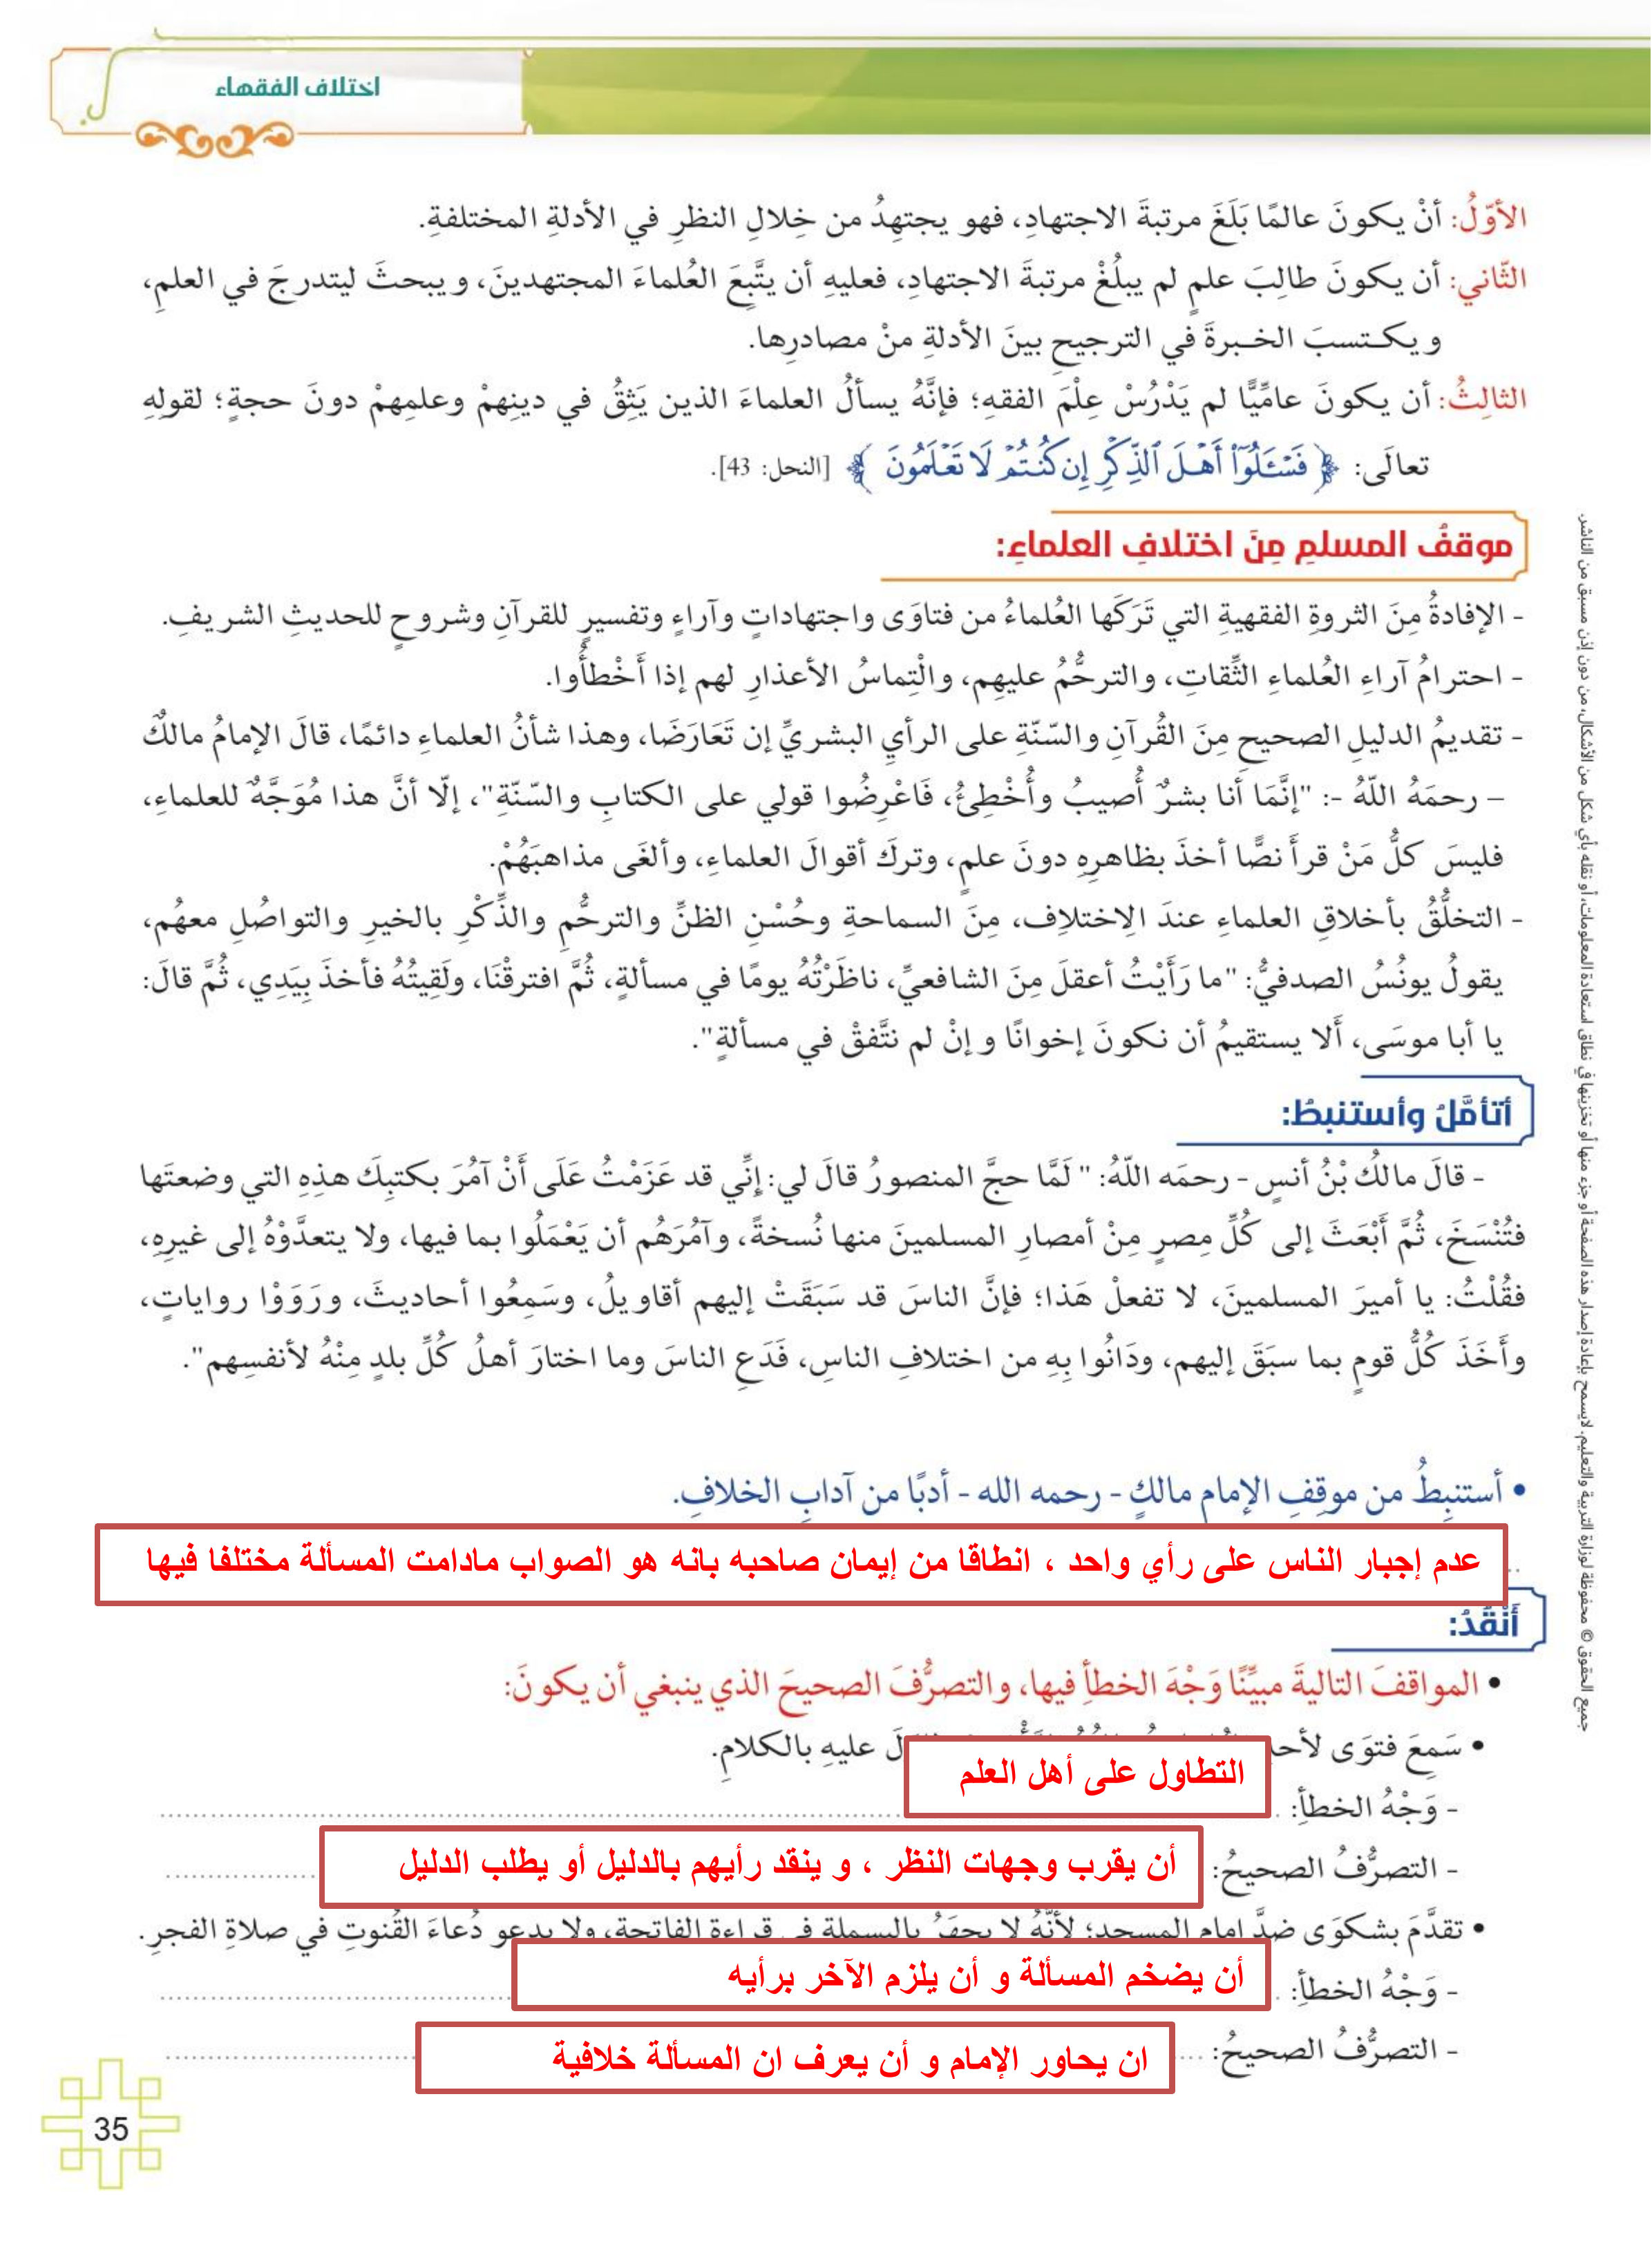 اختلاف الفقهاء
الأوّلُ: أنْ يكونَ عالمًا بَلَغَ مرتبةَ الاجتهادِ، فهو يجتهِدُ من خِلالِ النظرِ في الأدلةِ المختلفةِ.
الثّاني: أن يكونَ طالِبَ علمٍ لم يبلُغْ مرتبةَ الاجتهادِ، فعليهِ أن يتَّبِعَ العُلماءَ المجتهدينَ، ويبحثَ ليتدرجَ في العلمِ،
ويكتسبَ الخبرةَ في الترجيحِ بينَ الأدلةِ منْ مصادرِها.
الثالِثُ: أن يكونَ عامِّيًّا لم يَدْرُسْ عِلْمَ الفقهِ؛ فإنَّهُ يسألُ العلماءَ الذين يَثِقُ في دينِهمْ وعلمِهمْ دونَ حجةٍ؛ لقولهِ
تعالَى: ﴿ فَسْـَٔلُوٓا۟ أَهْلَ ٱلذِّكْرِ إِن كُنتُمْ لَا تَعْلَمُونَ ﴾ [النحل: 43].
موقفُ المسلمِ مِنَ اختلافِ العلماءِ:
- الإفادةُ مِنَ الثروةِ الفقهيةِ التي تَرَكَها العُلماءُ من فتاوَى واجتهاداتٍ وآراءٍ وتفسيرٍ للقرآنِ وشروحٍ للحديثِ الشريفِ.
- احترامُ آراءِ العُلماءِ الثِّقاتِ، والترحُّمُ عليهِم، والْتِماسُ الأعذارِ لهم إذا أَخْطأُوا.
- تقديمُ الدليلِ الصحيحِ مِنَ القُرآنِ والسّنّةِ على الرأيِ البشريِّ إن تَعَارَضَا، وهذا شأنُ العلماءِ دائمًا، قالَ الإمامُ مالكٌ
– رحمَهُ اللّهُ -: "إنَّمَا أنا بشرٌ أُصيبُ وأُخْطِئُ، فَاعْرِضُوا قولي على الكتابِ والسّنّةِ"، إلّا أنَّ هذا مُوَجَّهٌ للعلماءِ،
فليسَ كلُّ مَنْ قرأَ نصًّا أخذَ بظاهرِهِ دونَ علمٍ، وتركَ أقوالَ العلماءِ، وألغَى مذاهبَهُمْ.
- التخلُّقُ بأخلاقِ العلماءِ عندَ الِاختلاِف، مِنَ السماحةِ وحُسْنِ الظنِّ والترحُّمِ والذِّكْرِ بالخيرِ والتواصُلِ معهُم،
يقولُ يونُسُ الصدفيُّ: "ما رَأَيْتُ أعقلَ مِنَ الشافعيِّ، ناظَرْتُهُ يومًا في مسألةٍ، ثُمَّ افترقْنَا، ولَقِيتُهُ فأخذَ بِيَدِي، ثُمَّ قالَ:
يا أبا موسَى، أَلا يستقيمُ أن نكونَ إخوانًا وإنْ لم نتَّفقْ في مسألةٍ".
أتأمَّلُ وأستنبِطُ:
- قالَ مالكُ بْنُ أنسٍ - رحمَه اللّهُ: " لَمَّا حجَّ المنصورُ قالَ لي: إنِّي قد عَزَمْتُ عَلَى أَنْ آمُرَ بكتبِكَ هذِهِ التي وضعتَها
فتُنْسَخَ، ثُمَّ أَبْعَثَ إلى كُلِّ مِصرٍ مِنْ أمصارِ المسلمينَ منها نُسخةً، وآمُرَهُم أن يَعْمَلُوا بما فيها، ولا يتعدَّوْهُ إلى غيرِهِ،
فقُلْتُ: يا أميرَ المسلمينَ، لا تفعلْ هَذا؛ فإنَّ الناسَ قد سَبَقَتْ إليهم أقاويلُ، وسَمِعُوا أحاديثَ، ورَوَوْا رواياتٍ،
وأَخَذَ كُلُّ قومٍ بما سبَقَ إليهم، ودَانُوا بِهِ من اختلافِ الناسِ، فَدَعِ الناسَ وما اختارَ أهلُ كُلِّ بلدٍ مِنْهُ لأنفسِهم".
• أستنبِطُ من موقِفِ الإمام مالكٍ - رحمه الله - أدبًا من آدابِ الخلافِ.
عدم إجبار الناس على رأي واحد ، انطاقا من إيمان صاحبه بانه هو الصواب مادامت المسألة مختلفا فيها
أَنْقُدُ:
• المواقفَ التاليةَ مبيِّنًا وَجْهَ الخطأِ فيها، والتصرُّفَ الصحيحَ الذي ينبغي أن يكونَ:
• سَمِعَ فتوَى لأحدِ عليهِ بالكلامِ.
- وَجْهُ الخطأِ: التطاول على أهل العلم
- التصرُّفُ الصحيحُ: أن يقرب وجهات النظر ، و ينقد رأيهم بالدليل أو يطلب الدليل
• تقدَّمَ بشكوَى ضدَّ إمامِ المسجدِ؛ لأنَّهُ لا يجهَرُ بالبسملةِ في قراءةِ الفاتحةِ، ولا يدعو دُعاءَ القُنوتِ في صلاةِ الفجرِ.
- وَجْهُ الخطأِ: أن يضخم المسألة و أن يلزم الآخر برأيه
- التصرُّفُ الصحيحُ: ان يحاور الإمام و أن يعرف ان المسألة خلافية
35
جميع الحقوق © محفوظة لوزارة التربية والتعليم. لايسمح بإعادة إصدار هذه الصفحة أو جزء منها أو تخزينها في نطاق استعادة المعلومات، أو نقله بأي شكل من الأشكال، من دون إذن مسبق من الناشر.